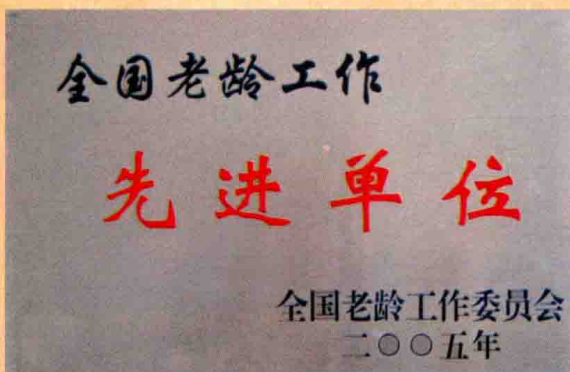 全国老龄工作
先进单位
全国老龄工作委员会
二○○五年